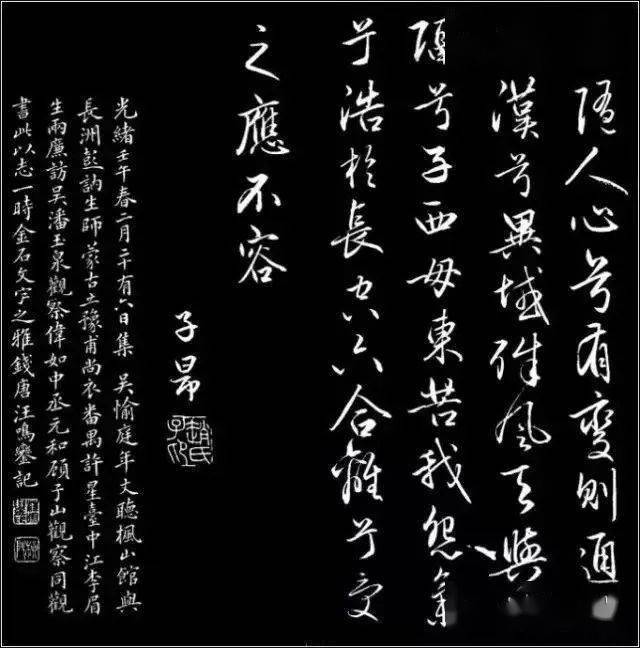 隨人心兮有變則通
漢兮異域殊風天與
隔兮子西母東苦我怨氣
兮浩於長空六合離兮受
之應不容
子昂
趙氏子昂
光緒壬午春二月二十有六日集 吳愉庭年丈聽楓山館與
長洲彭訥生師蒙古立豫甫尚衣番禺許星臺中江李眉
生兩廉訪吳潘玉泉觀察偉如中丞元和顧子山觀察同觀
書此以志一時金石文字之雅錢唐汪鳴鑾記